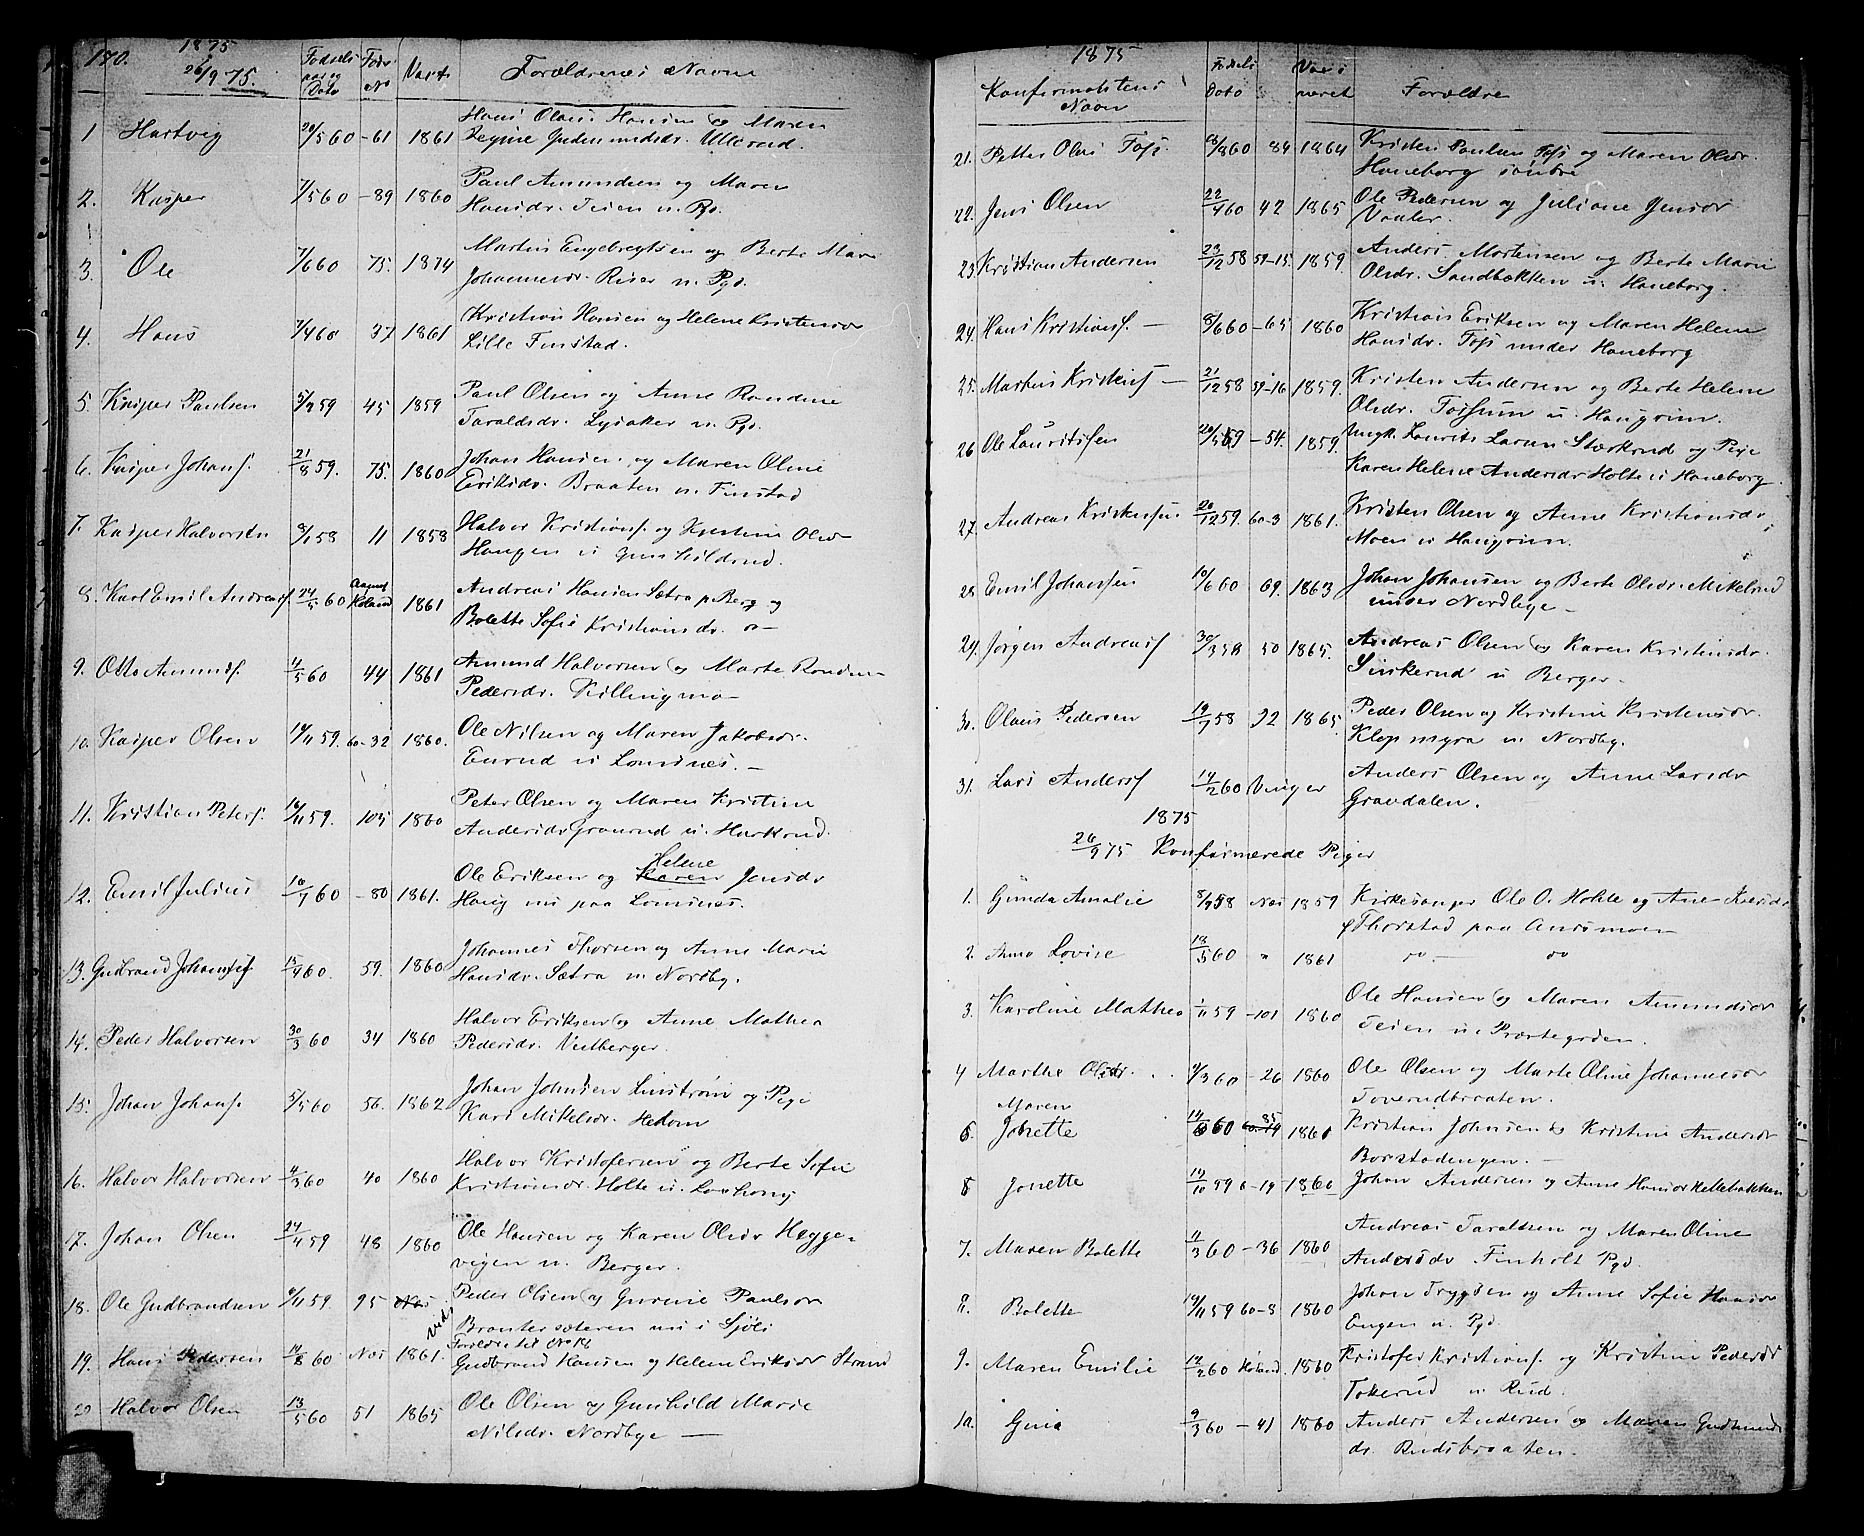 170.
1875
26/9 75.
Fødsels aar og Dato
Føds No
Vacc
Forældrenes Navne
1 Hartvig 20/5 60 -61 1861 Hans Olaus Hansen og Maren
Regine Gudmundsdr. Ullerud.
2. Kasper 7/5 60 -89 1860 Paul Amundsen og Maren
Hansdr. Teien u. Pgd.
3. Ole 7/6 60 75. 1874 Martin Engebregtsen og Berte Mari
Johannesdr. Riser u. Pgd.
4. Hans 7/4 60 37 1861 Kristian Hansen og Helene Kristensdr
Lille Finstad.
5. Kasper Paulsen 5/7 59 45 1859 Paul Olsen og Anne Randine
Taraldsdr. Lysaker u. Pgd.
6. Kasper Johans. 21/8 59. 75. 1860 Johan Hansen og Maren Oline
Eriksdr. Braaten u. Finstad
7. Kasper Halvorsen 8/1 58 11 1858 Halvor Kristians. og Kjerstine Olsdr
Haugen u Gunhildrud.
8. Karl Emil Andreasf 24/5 60 Aamot Høland 1861 Andreas Hansen Sætra p. Berg og
Bolette Sofie Kristiansdr. o-
9. Otto Amunds. 4/5 60 44 1861 Amund Halvorsen og Marte Randine
Pedersdr. Killingmo-
10. Kasper Olsen 14/11 59. 60-32 1860. Ole Nilsen og Maren Jakobsdr.
Enrud u Lomsnes. -
11. Kristian Peters. 16/11 59. 105 1860 Peter Olsen og Maren Kristine
Andersdr Graurud u. Harkrud.
12. Emil Julius 10/9 60 -80 1861. Ole Eriksen og Karen Helene Jensdr
Haug nu paa Lomsnes.
13. Gudbrand Johannesf 15/4 60. 59. 1860 Johannes Thorsen og Anne Marie
Hansdr. Sætra u. Nordby.
14. Peder Halvorsen 30/3 60 34 1860 Halvor Eriksen og Anne Mathea
Pedersdr. Vestberger.
15. Johan Johans. 5/5 60 56. 1862 Johan Johnsen Linstrøm og Pige
Kari Mikelsdr. Hedom
16. Halvor Halvorsen 4/3 60 40 1860 Halvor Kristofersen og Berte Sofie
Kristiansdr. Holte u. Lashaug
17. Johan Olsen 24/4 59 48 1860 Ole Hansen og Karen Olsdr Hegge-
vigen u. Berger.
18. Ole Gudbrandsen 6/11 59 95 Nes Peder Olsen og Gurine Paulsdr
Branter sæteren nu i Sjöli
Forældre til No 18
19. Hans Pedersen 14/8 60 Næs 1861. Gudbrand Hansen og Helene Eriksdr Strand
20 Halvor Olsen 13/5 60 51 1865 Ole Olsen og Gunhild Marie
Nilsdr. Nordbye -
1875
Konfirmantens Navn
Fødsels Dato
Vacsineret
Forældre
21. Petter Olus Foss 18/8 60 84 1864 Kristen Paulsen Foss og Maren Olsdr.
Haneborg søndre
22. Jens Olsen 22/4 60 42 1865 Ole Pedersen og Juliane Jensdr
Vaaler.
23. Kristian Andersen 23/12 58 59-15 1859. Anders Mortensen og Berte Marie
Olsdr. Sandbækken u. Haneborg.
24. Hans Kristiansf. - 8/6 60 -65 1860 Kristian Eriksen og Maren Helene
Hansdr. Foss under Haneborg
25. Martin Kristensf - 21/12 58 59-16 1859. Kristen Andersen og Berte Helene
Olsdr. Fossum u. Haugrim.
26 Ole Lauritssen 20/5 59 -54. 1859. Ungk. Laurits Larsen Stærkrud og Pige
Karen Helene Andersdr Holte u Haneborg.
27. Andreas Kristensen 20/12 59. 60-3 1861. Kristen Olsen og Anne Kristiansdr
Moen u Haugrim.
28 Emil Johanssen 10/6 60 69. 1863 Johan Johansen og Berte Olsdr. Mikelrud
under Nordbye -
29. Jørgen Andreasf 30/3 58 50 1865. Andreas Olsen og Karen Kristensdr.
Sinkerud u Berger-
30. Olaus Pedersen 19/7 58 92 1865 Peder Olsen og Kristine Kristensdr.
Klopmyra u. Nordby.
31. Lars Andersf 14/2 60 Vinger Anders Olsen og Anne Larsdr
Gravdalen.
1875
26/9 75 Konfirmerede Piger
1. Gunda Amalie 8/9 58 Næs 1859 Kirkesanger Ole O. Hohle og Ane Iversdr
f Thorstad paa Aursmoen
2. Anna Lovise 18/5 60 " 1861 do.- do
3. Karoline Mathea 1/11 59 -101 1860 Ole Hansen og Maren Amundsdr
Teien u. Præstegrden.
4 Marthe Olsdr. 4/3 60 -26 1860 Ole Olsen og Marte Oline Johannesdr
Toverudbraaten.
5. Maren Jonette 14/6 60 85 1861 Kristian Johnsen og Kristine Andersdr
Borstadengen. -
6 Jonette 14/10 59 6-19 1860 Johan Andersen og Anne Hansdr Hellebakken
7. Maren Bolette 4/3 60 -36 1860 Andreas Taraldsen og Maren Oline
Andersdr Finholt Pgd.
8. Bolette 19/11 59 60-8 1860 Johan Trygsen og Anne Sofie Hansdr
Engen u. Pgd.
9. Maren Emilie 12/2 60 Høland. 1860 Kristofer Kristians. og Kristine Pedersdr
Tokerud u Rud.
10. Gina 9/3 60 -41 1860 Anders Andersen og Maren Gudmunds
dr. Rudsbraaten.